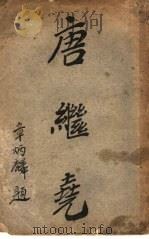 唐繼堯
章炳麟題